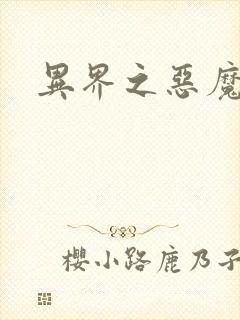 異界之惡魔
櫻小路鹿乃子